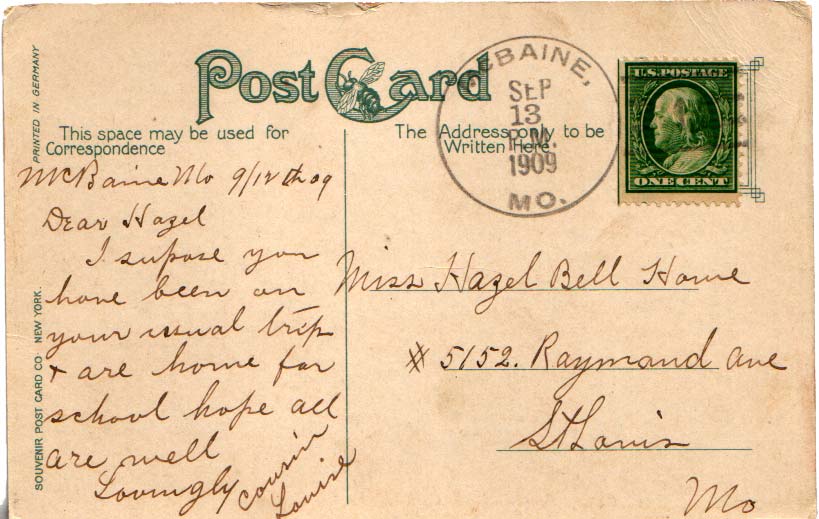 PRINTED IN GERMANY
Post Card
This space may be used for
Correspondence
The Address only to be
Written Here.
BAINE,
SEP
13
P.M.
1909
MO.
U.S. POSTAGE
ONE CENT
McBaine Mo 9/12th 09
Dear Hazel
I supose you
have been on
your usual trip
+ are home for
school hope all
are well
Lovingly cousin
Louise
Miss Hazel Bell Howe
# 5152. Raymond Ave
St Louis
Mo
SOUVENIR POST CARD CO. NEW YORK.